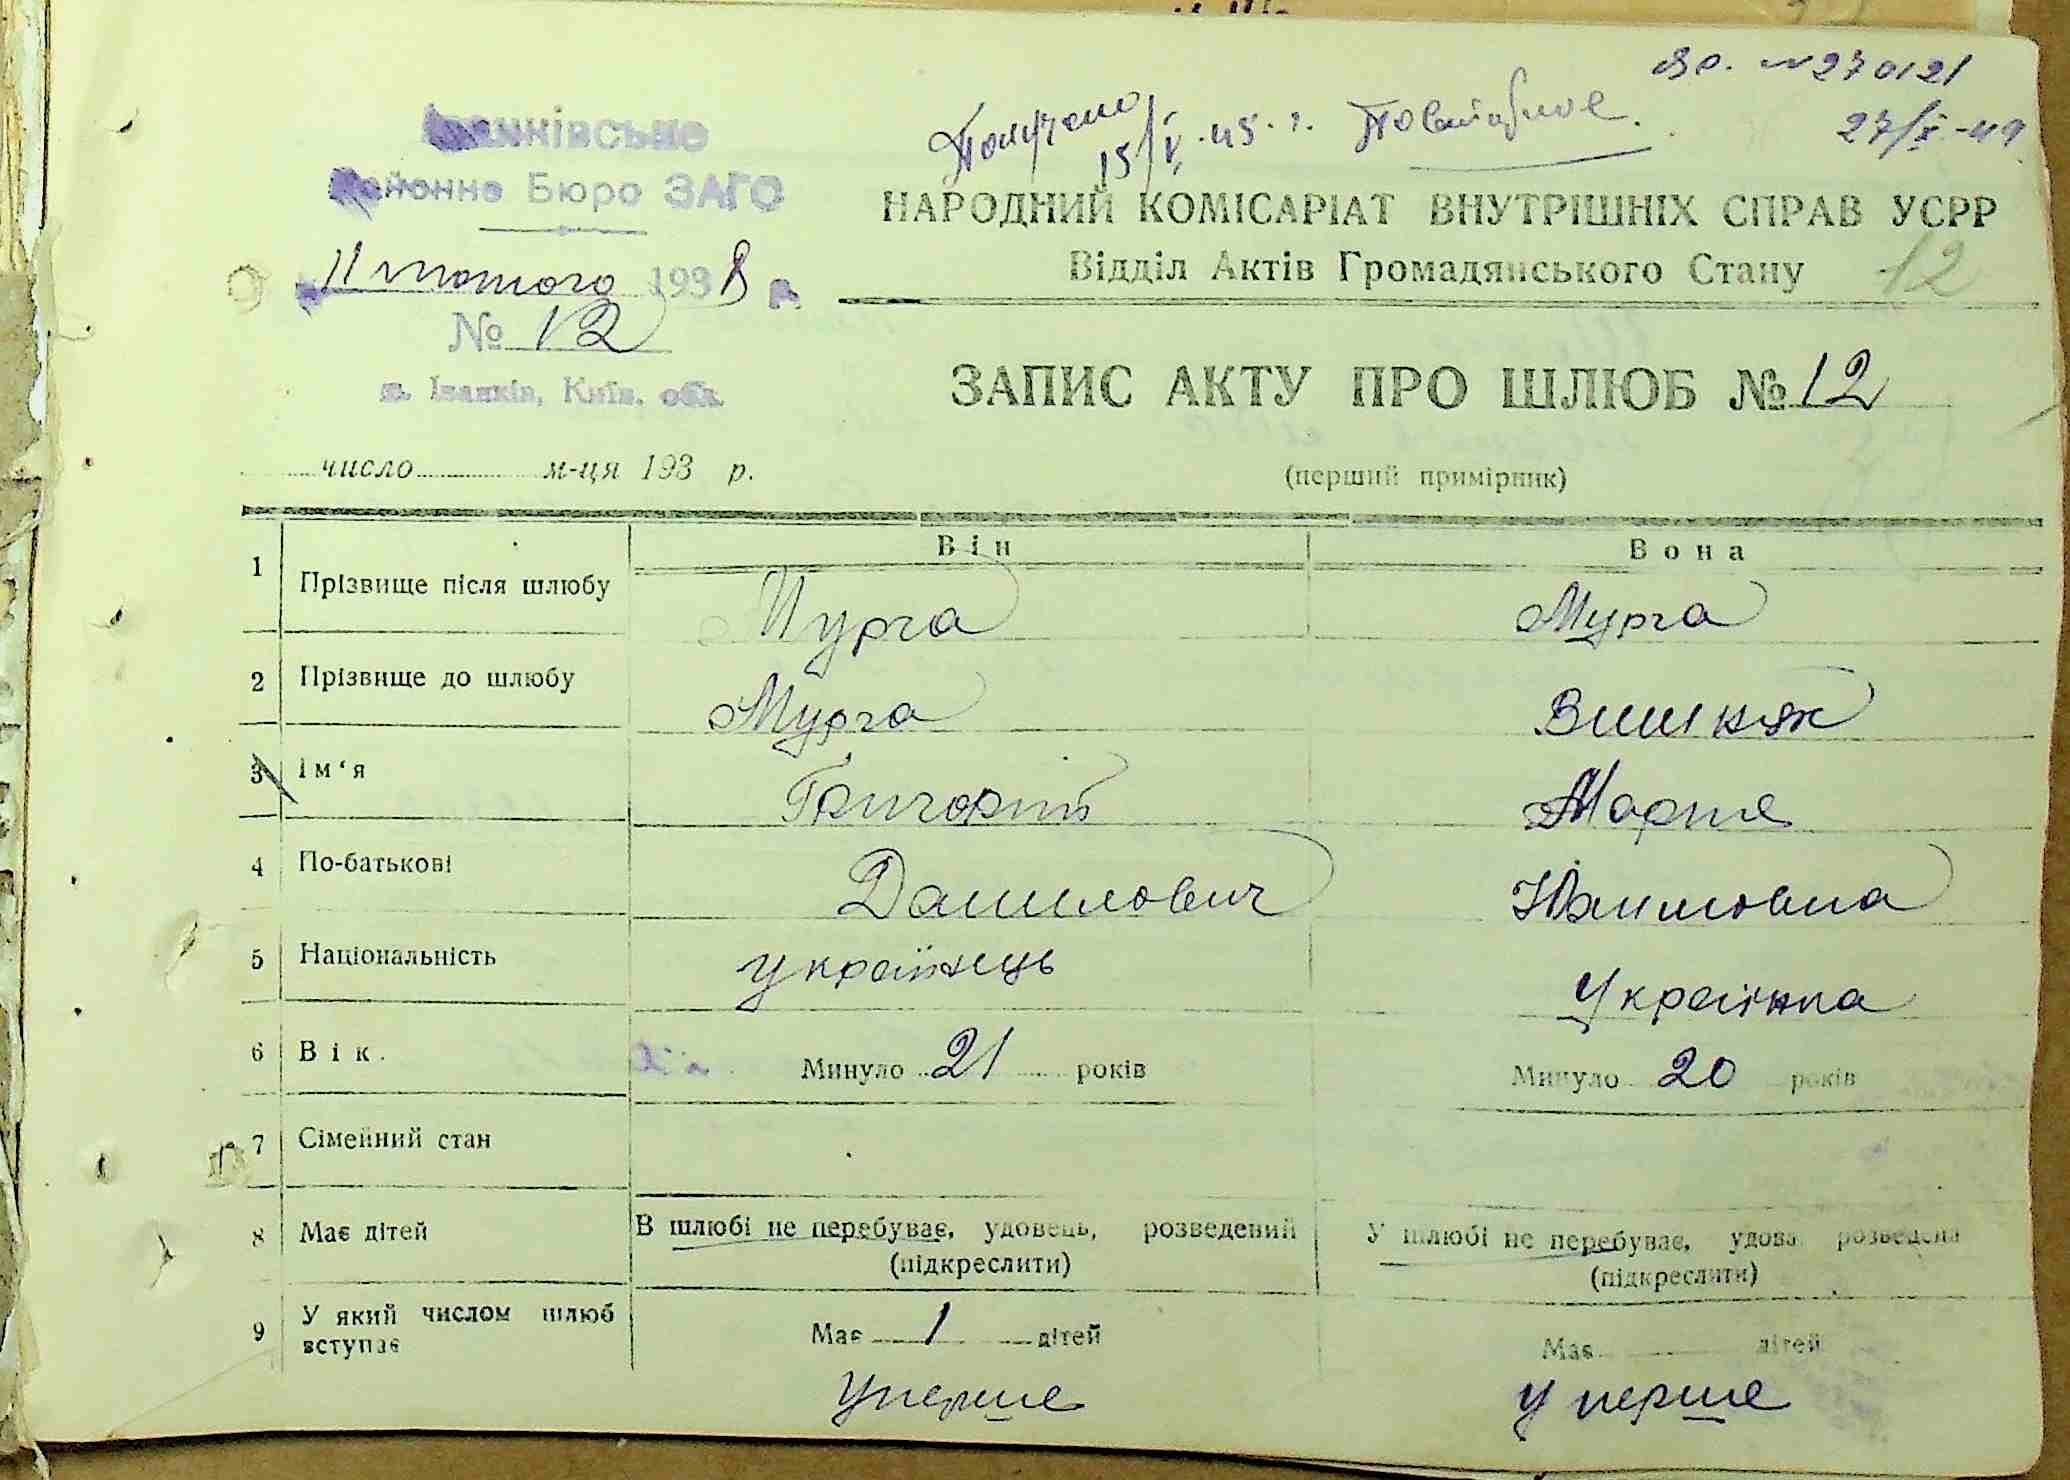 Вр. № 270121
27/X-49
Получено 15/V-45 г. Повторное.
Іванківське
Районне Бюро ЗАГС
11 лютого 1938 р.
№ 12
м. Іванків, Київ. обл.
НАРОДНИЙ КОМІСАРІАТ ВНУТРІШНІХ СПРАВ УСРР
Відділ Актів Громадянського Стану 12
ЗАПИС АКТУ ПРО ШЛЮБ № 12
число м-ця 193 р.
(перший примірник)
Він Вона
1 Прізвище після шлюбу Мурга Мурга
2 Прізвище до шлюбу Мурга Вишняк
3 Ім‘я Григорій Мария
4 По-батькові Данилович
5 Національність українець Українка
6 Вік. Минуло 21 років Минуло 20 років
7 Сімейний стан
8 Має дітей В шлюбі не перебуває, удовець, розведений У шлюбі не перебуває, удова розведена
(підкреслити) (підкреслити)
9 У який числом шлюб вступає Має 1 дітей Має дітей
Уперше У перше